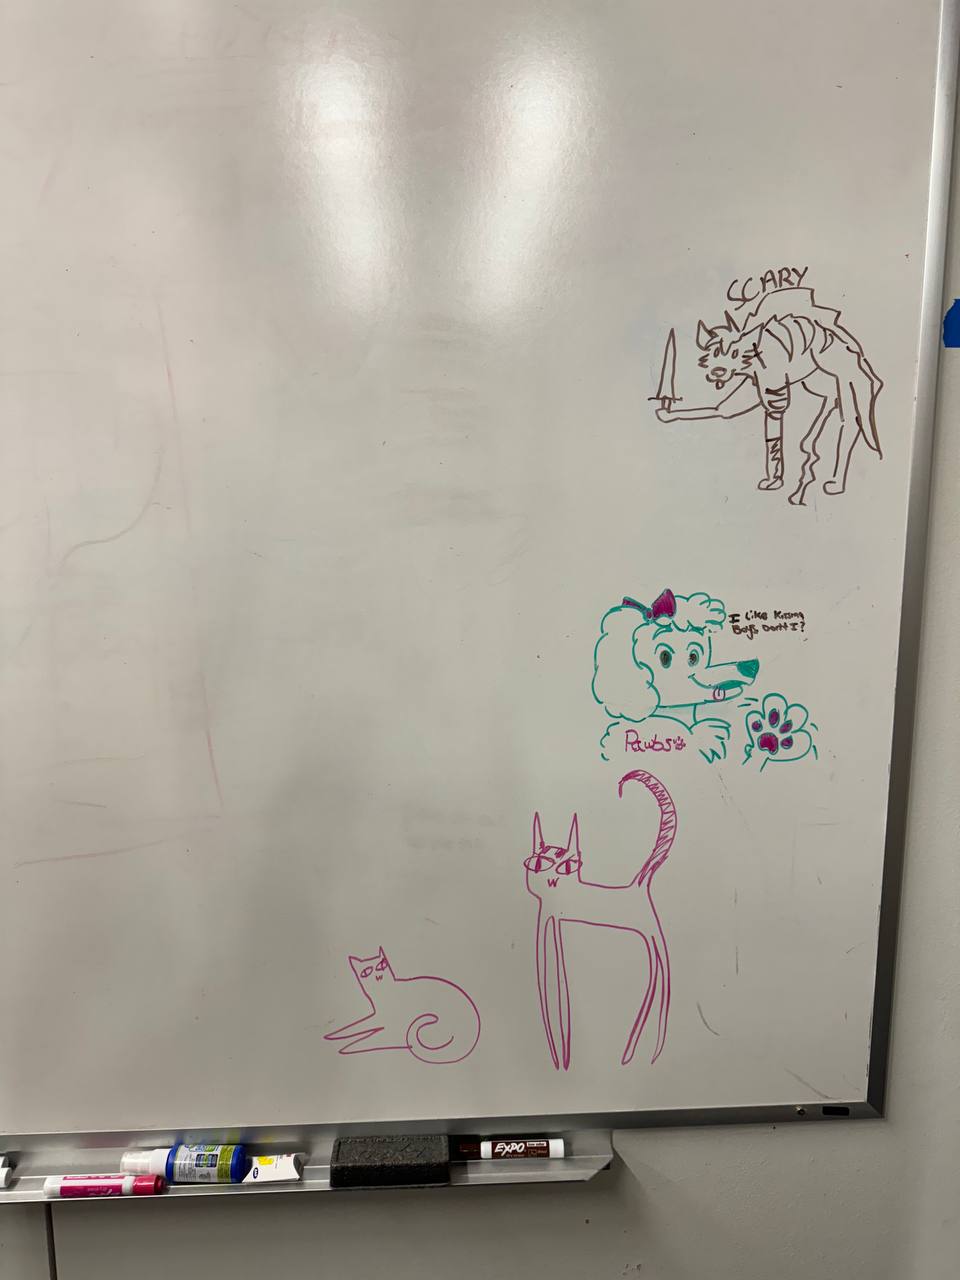 SCARY
I Like Kissing
Boys Don't I?
Pawbs
EXPO